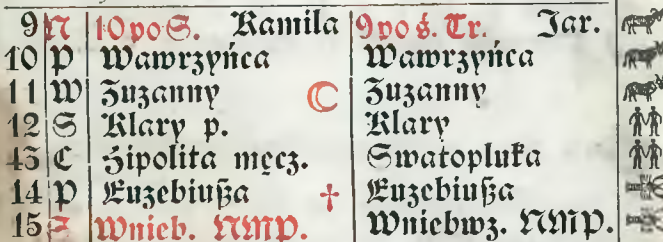 9 N 10 po S. Kamila 9 po ś. Tr. Jar.
10 P Wawrzyńca Wawrzyńca
11 W Zuzanny ☾ Zuzanny
12 S Klary p. Klary
13 C Hipolita męcz. Swatopluka
14 P Euzebiusza † Euzebiusza
15 S Wnieb. NMP. Wniebwz. NMP.